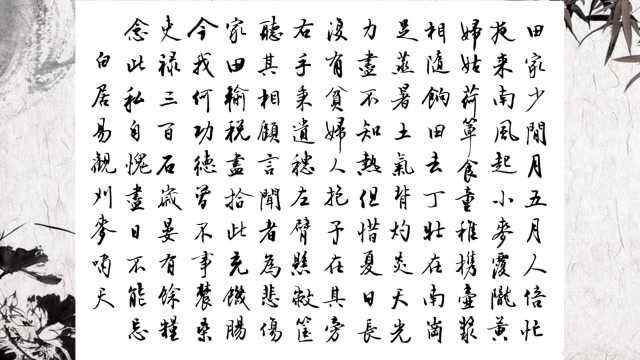 田家少閒月五月人倍忙
夜来南風起小麥覆隴黃
婦姑荷簞食童稚攜壺漿
相隨餉田去丁壯在南崗
足蒸暑土氣背灼炎天光
力盡不知熱但惜夏日長
復有貧婦人抱子在其旁
右手秉遺穗左臂懸敝筐
聽其相顧言聞者為悲傷
家田輸稅盡拾此充饑腸
今我何功德曾不事農桑
吏禄三百石歲晏有餘糧
念此私自愧盡日不能忘
白居易觀刈麥嘯天